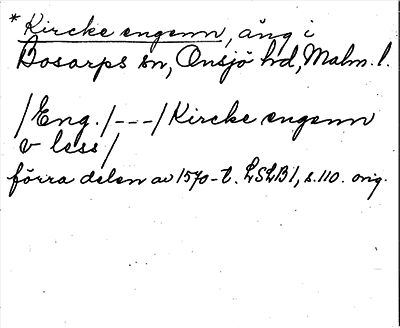 * Kircke engenn, äng i
Bosarps sn, Onsjö hd, Malm. l.
/Eng./---/Kircke engenn
v less/
förra delen av 1570-t. LSLB1, s. 110. orig.